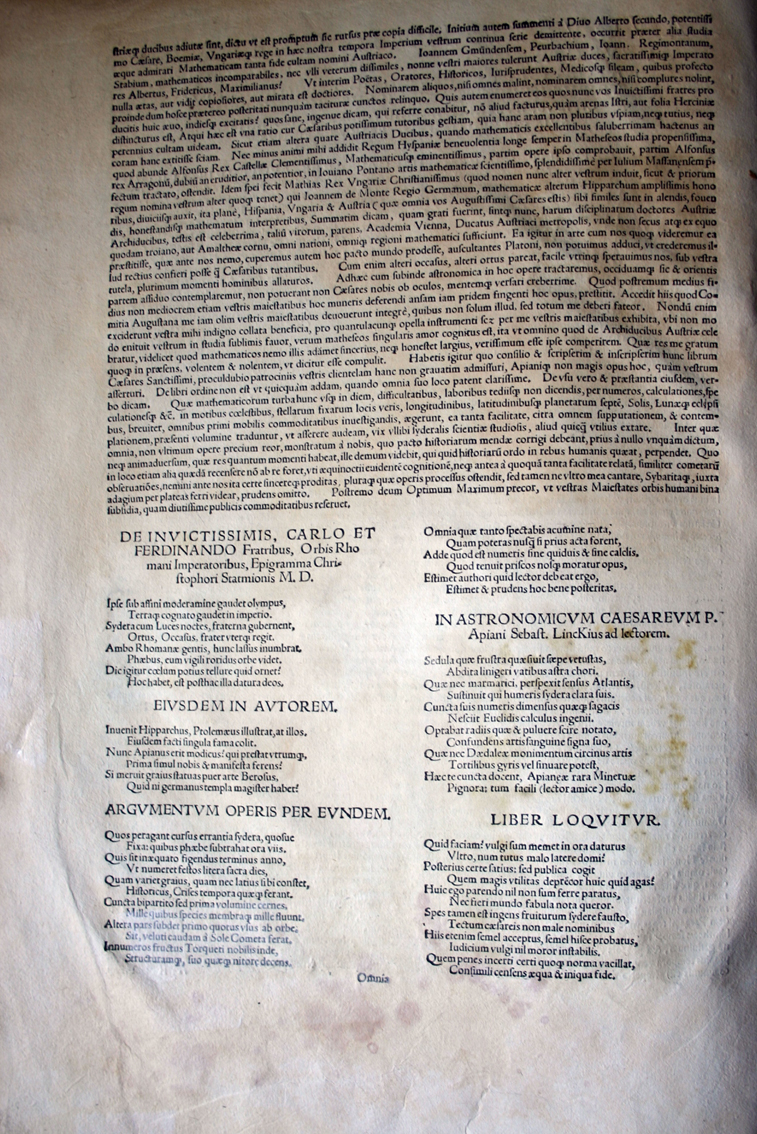 striæq; ducibus adiutæ sint, dictu vt est promptum sic rursus præ copia difficile. Initium autem summenti à Diuo Alberto secundo, potentissi
mo Cæsare, Boemiæ, Vngariæq; rege in hæc nostra tempora Imperium vestrum continua serie demittente, occurrit præter alia studia
æque admirati Mathematicam tanta fide cultam nomini Austriaco. Ioannem Gmündensem, Peurbachium, Ioann. Regimontanum,
Stabium, mathematicos incomparabiles, nec vlli veterum dissimiles, nonne vestri maiores tulerunt Austriæ duces, sacratissimiq; Imperato
res Albertus, Fridericus, Maximilianus? Vt interim Poëtas, Oratores, Historicos, Iurisprudentes, Medicosq; sileam, quibus profecto
nulla ætas, aut vidit copiosiores, aut mirata est doctiores. Nominarem aliquos, nisi omnes malint, nominarem omnes, nisi complures nolint,
proinde dum hosce prætereo posteritati nunquàm tacituræ cunctos relinquo. Quis autem enumeret eos quos nunc vos Inuictissimi fratres pro
ducitis huic æuo, indiesq; excitatis? quos sanè, ingenue dicam, qui referre conabitur, nō aliud facturus, quàm arenas Istri, aut folia Herciniæ
distincturus est, Atqui hæc est vna ratio cur Cæsaribus potissimum tutoribus gestiam, quia hanc aram non pluribus vspiam, neq; tutius, neq;
perennius cultam uideam. Sicut etiam altera quare Austriacis Ducibus, quando mathematicis excellentibus saluberrimam hactenus an
coram hanc extitisse sciam. Nec minus animi mihi addidit Regum Hyspaniæ beneuolentia longe semper in Matheseos studia propensissima,
quod abunde Alfonsus Rex Castellæ Clementissimus, Mathematicusq; eminentissimus, partim opere ipso comprobauit, partim Alfonsus
rex Arragonū, dubiū an eruditior, an potentior, in Iouiano Pontano artis mathematicæ scientissimo, splendidissime per Iulium Maffinensem p-
fectum tractato, ostendit. Idem ipsi fecit Mathias Rex Vngariæ Christianissimus (quod nomen nunc alter vestrum induit, sicut & priorum
regum nomina vestrum alter quoq; tenet) qui Ioannem de Monte Regio Germanum, mathematicæ alterum Hipparchum amplissimis hono
ribus, diuitiisq; auxit, ita planè, Hispania, Vngaria & Austria (quæ omnia vos Augustissimi Cæsares estis) sibi similes sunt in alendis, fouen
dis, honestandisq; mathematum interpretibus, Summatim dicam, quam grati fuerint, sintq; nunc, harum disciplinarum doctores Austriæ
Archiducibus, testis est celeberrima, taliū virorum, parens, Academia Vienna, Ducatus Austriaci metropolis, vnde non secus atq; ex equo
quodam troiano, aut Amaltheæ cornu, omni nationi, omniq; regioni mathematici sufficiunt. Ea igitur in arte cum nos quoq; videremur ea
præstitisse, quæ ante nos nemo, cuperemus autem hoc pacto mundo prodesse, auscultantes Platoni, non potuimus adduci, vt crederemus il-
lud rectius confieri posse q̃ Cæsaribus tutantibus. Cum enim alteri occasus, alteri ortus pareat, facile vtrinq; spectauimus nos, sub vestra
tutela, plurimum momenti hominibus allaturos. Adhæc cum subinde astronomica in hoc opere tractaremus, occiduamq; sic & orientis
partem assiduo contemplaremur, non potuerunt non Cæsares nobis ob oculos, mentemq; versari creberrime. Quod postremum medius fi-
dius non mediocrem etiam vestris maiestatibus hoc muneris deferendi ansam iam pridem fingenti hoc opus, præstitit. Accedit hiis quod Co-
mitia Augustana me iam olim vestris maiestatibus deuouerunt integrè, quibus non solum illud, sed totum me deberi fateor. Nondū enim
exciderunt vestra mihi indigno collata beneficia, pro quantulacunq; opella instrumenti scȝ per me vestris maiestatibus exhibita, vbi non mo
do enituit vestrum in studia sublimis fauor, verum matheseos singularis amor cognitus est, ita vt omnino quod de Archiducibus Austriæ cele
bratur, videlicet quod mathematicos nemo illis adæmet sincerius, neq; honestet largius, verissimum esse ipse comperirem. Quæ res me gratum
quoq; in præsens, volentem & nolentem, vt dicitur esse compulit. Habetis igitur quo consilio & scripserim & inscripserim hunc librum
Cæsares Sanctissimi, proculdubio patrociniis vestris clientelam hanc non grauatim admissuri, Apianiq; non magis opus hoc, quàm vestrum
asserturi. De libri ordine non est vt quicquàm addam, quando omnia suo loco patent clarissime. De vsu vero & præstantia eiusdem, ver-
bo dicam. Quæ mathematicorum turba hunc vsq; in diem, difficultatibus, laboribus tediisq; non dicendis, per numeros, calculationes, spe
culationesq; &c̃. in motibus cœlestibus, stellarum fixarum locis veris, longitudinibus, latitudinibusq; planetarum septē, Solis, Lunæq; eclipsi
bus, breuiter, omnibus primi mobilis commoditatibus inuestigandis, ægerunt, ea tanta facilitate, citra omnem supputationem, & contem-
plationem, præsenti volumine traduntur, vt asserere audeam, vix vllibi syderalis scientiæ studiosis, aliud quicq̃ vtilius extare. Inter quæ
omnia, non vltimum opere precium reor, monstratum à nobis, quo pacto historiarum mendæ corrigi debeant, prius à nullo vnquàm dictum,
neq; animaduersum, quæ res quantum momenti habeat, ille demum videbit, qui quid historiarū ordo in rebus humanis queat, perpendet. Quo
in loco etiam alia quædā recensere nō ab re foret, vti æquinoctii euidentē cognitionē, neq; antea à quoquā tanta facilitate relatā, similiter cometarū
obseruatiōes, nemini ante nos ita certe sincereq; proditas, pluraq; quæ operis processus ostendit, sed tamen ne vltro mea cantare, Sybaritaq; iuxta
adagium per plateas ferri videar, prudens omitto. Postremo deum Optimum Maximum precor, vt vestras Maiestates orbis humani bina
subsidia, quàm diutissime publicis commoditatibus reseruet.
DE INVICTISSIMIS, CARLO ET
FERDINANDO Fratribus, Orbis Rho
mani Imperatoribus, Epigramma Chri-
stophori Statmionis M. D.
Ipse sub affini moderamine gaudet olympus,
Terraq; cognato gaudet in imperio.
Sydera cum Luces noctes, fraterna gubernent,
Ortus, Occasus, frater vterq; regit.
Ambo Rhomanæ gentis, hunc lassus inumbrat,
Phœbus, cum vigili roridus orbe videt.
Dic igitur cœlum potius tellure quid ornet?
Hoc habet, est posthac illa datura deos.
EIVSDEM IN AVTOREM.
Inuenit Hipparchus, Ptolemæus illustrat, at illos.
Eiusdem facti singula fama colit.
Nunc Apianus erit modicus? qui præstat vtrumq;,
Prima simul nobis & manifesta ferens?
Si meruit graius statuas puer arte Berosus,
Quid ni germanus templa magister habet?
ARGVMENTVM OPERIS PER EVNDEM.
Quos peragant cursus errantia sydera, quosue
Fixa: quibus phœbe subtrahat ora viis.
Quis sit inæquato figendus terminus anno,
Vt numeret festos litera sacra dies,
Quam variet graius, quam nec latius sibi constet,
Historicus, Crises tempora quæq; ferant.
Cuncta bipartito sed prima volumine cernes,
Mille quibus species membraq; mille fluunt,
Altera pars subdet primo quotus vsus ab orbe,
Sit, veluti caudam à Sole Cometa ferat,
Innumeros fructus Torqueti nobilis inde,
Structuramq;, suo quæq; nitore decens.
Omnia
Omnia quæ tanto spectabis acumine nata,
Quam poteras nusq̃ si prius acta forent,
Adde quod est numeris sine quiduis & sine calclis,
Quod tenuit priscos nosq; moratur opus,
Estimet authori quid lector debeat ergo,
Estimet & prudens hoc bene posteritas.
IN ASTRONOMICVM CAESAREVM P.
Apiani Sebast. LincKius ad lectorem.
Sedula quæ frustra quæsiuit sæpe vetustas,
Abdita linigeri vatibus astra chori.
Quæ nec marmarici, perspexit sensus Atlantis,
Sustinuit qui humeris sydera clara suis.
Cuncta suis numeris dimensus quæq; sagacis
Nesciit Euclidis calculus ingenii.
Optabat radiis quæ & puluere scire notato,
Confundens artis sanguine signa suo,
Quæ nec Dædaleæ monimentum circinus artis
Tortilibus gyris vel sinuare potest,
Hæc te cuncta docent, Apianeæ rara Mineruæ
Pignora: tum facili (lector amice) modo.
LIBER LOQVITVR.
Quid faciam? vulgi sum memet in ora daturus
Vltro, num tutus malo latere domi?
Posterius certe satius: sed publica cogit
Quem magis vtilitas deprécor huic quid agas?
Huic ego parendo nil non sum ferre paratus,
Nec fieri mundo fabula nota queror.
Spes tamen est ingens fruiturum sydere fausto,
Tectum cæsareis non male nominibus
Hiis etenim semel acceptus, semel hisce probatus,
Iudicium vulgi nil moror instabilis.
Quem penes incerti certi quoq; norma vacillat,
Consimili censens æqua & iniqua fide.